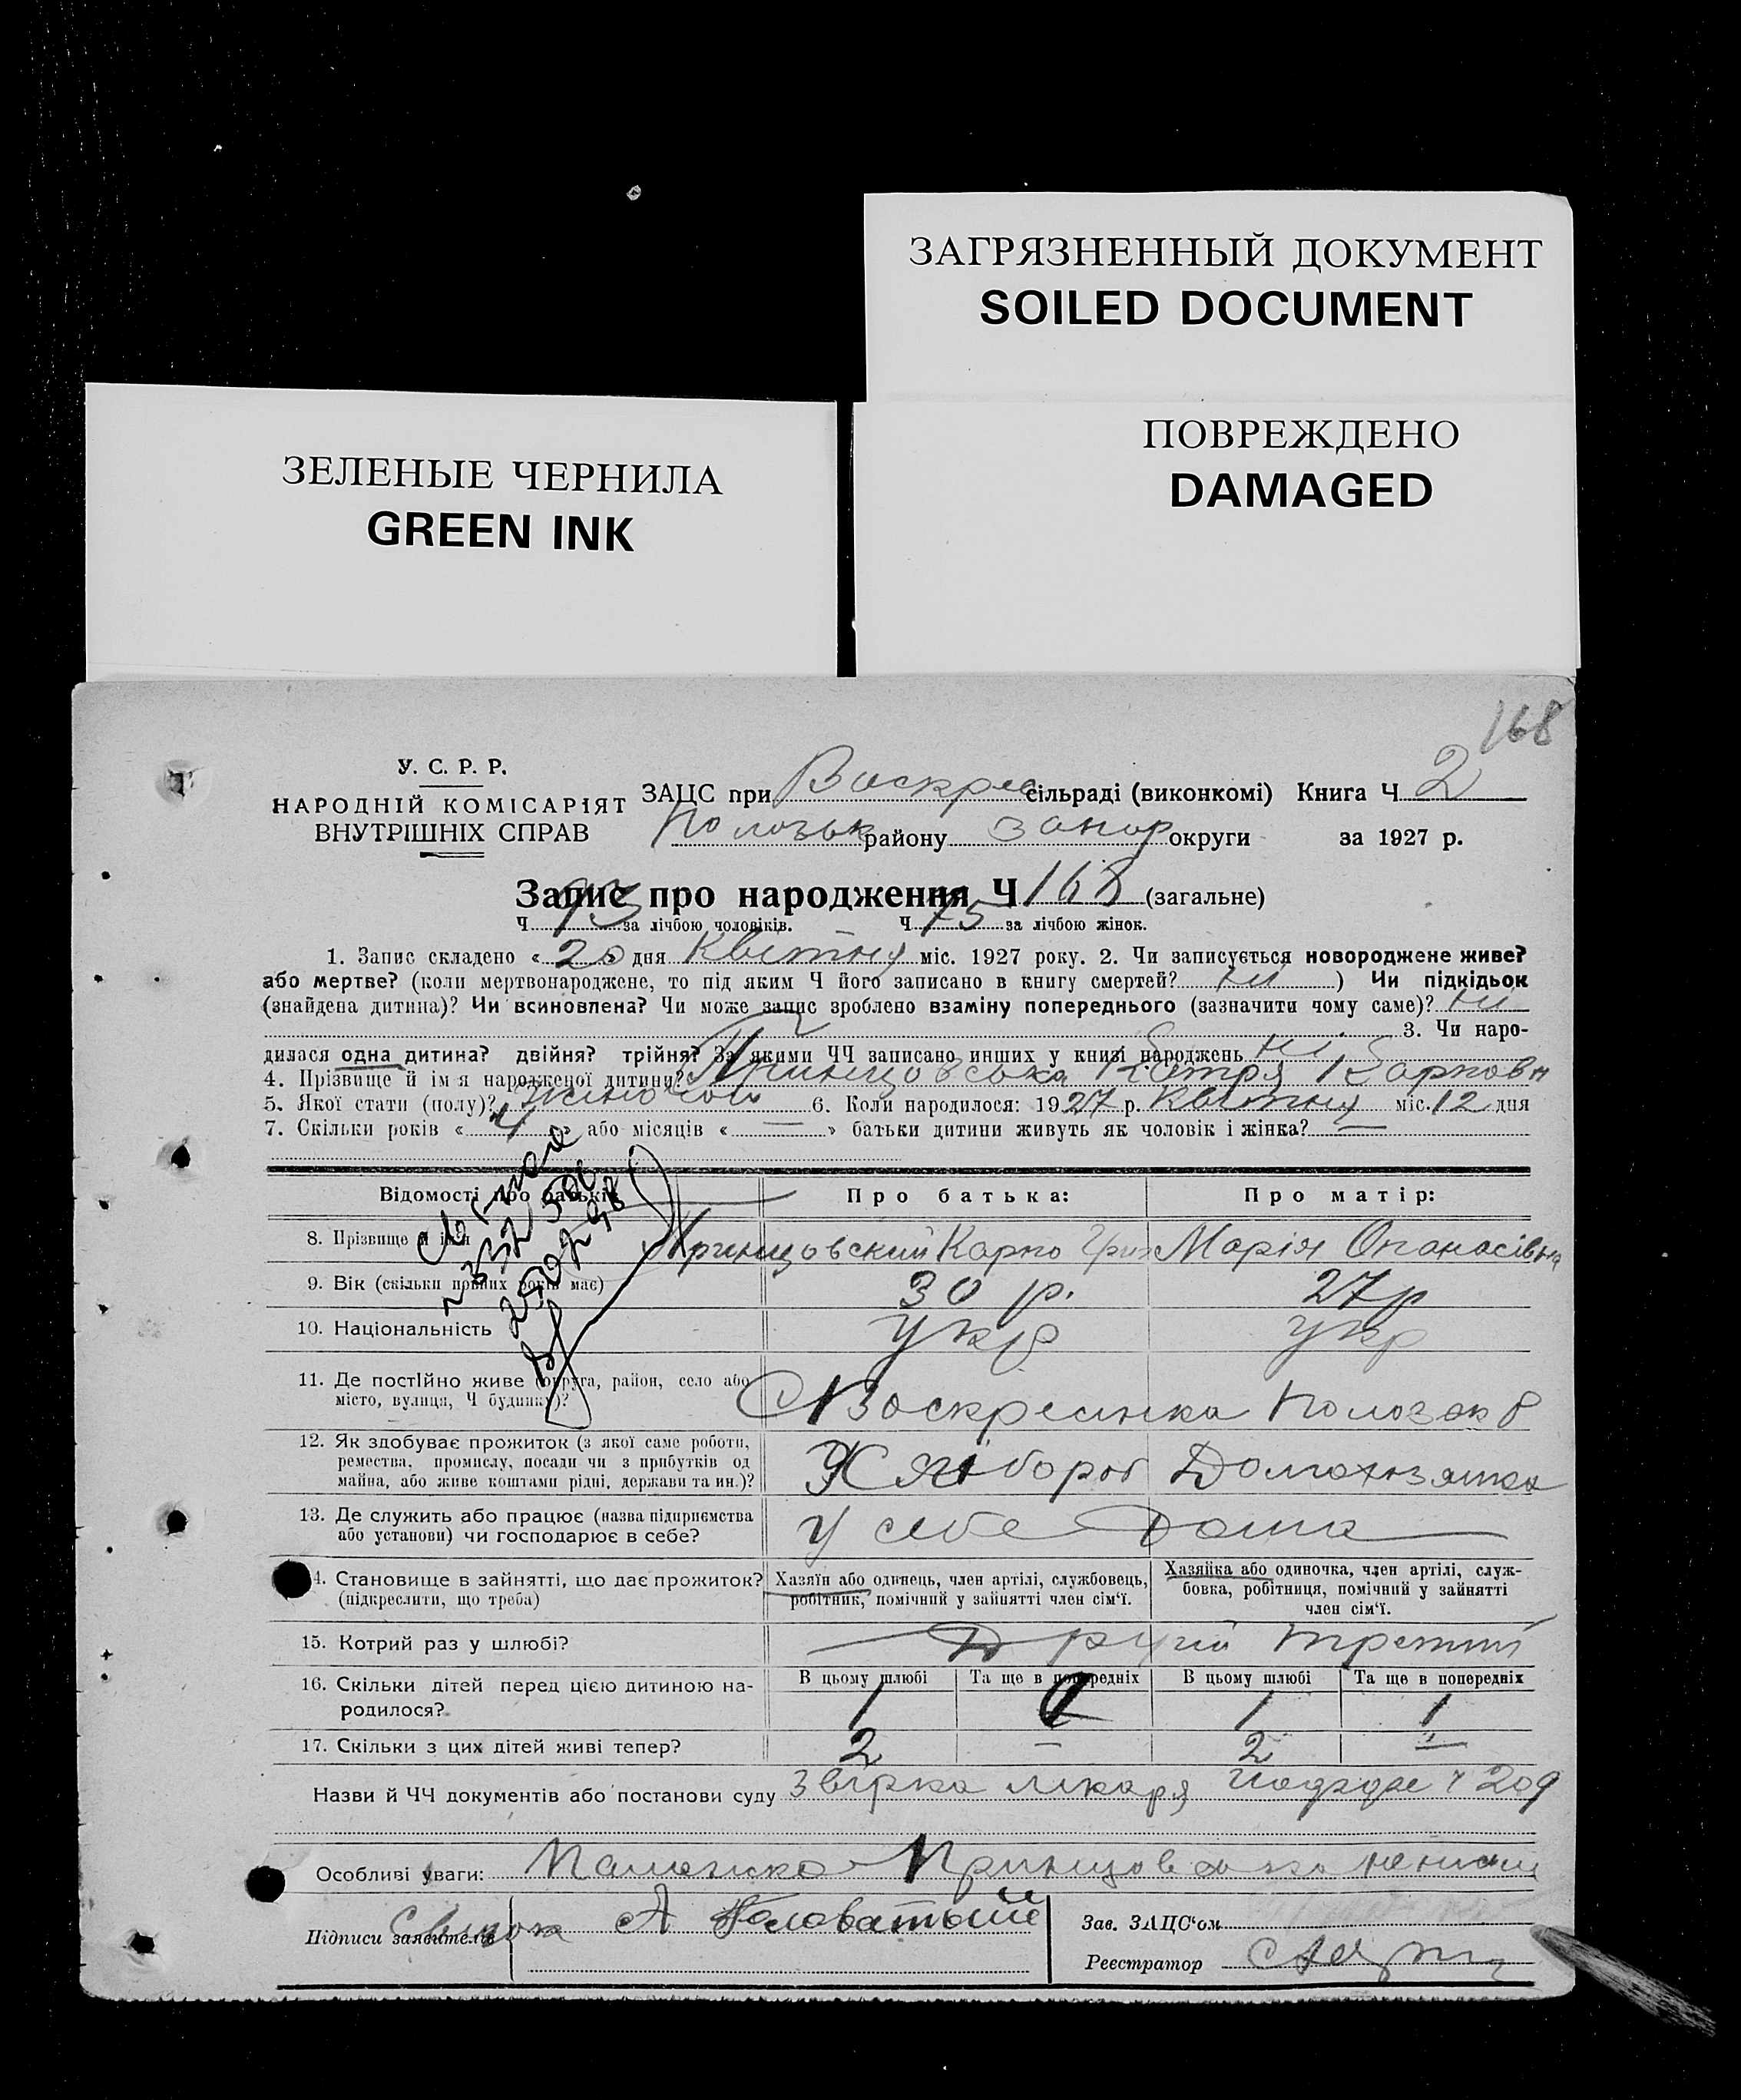 ЗАГРЯЗНЕННЫЙ ДОКУМЕНТ
SOILED DOCUMENT
ЗЕЛЕНЫЕ ЧЕРНИЛА
GREEN INK
ПОВРЕЖДЕНО
DAMAGED
168
У. С. Р. Р.
НАРОДНІЙ КОМІСАРІЯТ
ВНУТРІШНІХ СПРАВ
ЗАЦС при Воскрес сільраді (виконкомі) Книга Ч 2
Пологськ району Запор округи за 1927 р.
Запис про народження Ч 168 (загальне)
Ч 93 за лічбою чоловіків. Ч 75 за лічбою жінок.
1. Запис складено « 20 » дня Квітню міс. 1927 року. 2. Чи записується новороджене живе?
або мертве? (коли мертвонароджене, то під яким Ч його записано в книгу смертей? ні ) Чи підкідьок
(знайдена дитина)? Чи всиновлена? Чи може запис зроблено взаміну попереднього (зазначити чому саме)? ні
3. Чи наро-
дилася одна дитина? двійня? трійня? За якими ЧЧ записано инших у книзі народжень ні
4. Прізвище й ім'я народженої дитини? Принцовська Катря Карповн
5. Якої стати (полу)? жіночой 6. Коли народилося: 1927 р. Квітню міс. 12 дня
7. Скільки років « 4 » або місяців « — » батьки дитини живуть як чоловік і жінка? —
Відомості про батьків Про батька: Про матір:
8. Прізвище й ім'я Принцовский Карпо Григ Марія Опанасівна
9. Вік (скільки повних років має) 30 р. 27 р
10. Національність укр укр
11. Де постійно живе (округа, район, село або
місто, вулиця, Ч будинку)? С Воскресенка Пологок Р
12. Як здобуває прожиток (з якої саме роботи,
ремества, промислу, посади чи з прибутків од
майна, або живе коштами рідні, держави та ин.)? Хлібороб Домохозяйка
13. Де служить або працює (назва підприємства
або установи) чи господарює в себе? У себе Дома
14. Становище в зайнятті, що дає прожиток?
(підкреслити, що треба)
Хазяїн або одинець, член артілі, службовець,
робітник, помічний у зайнятті член сім'ї.
Хазяйка або одиночка, член артілі, служ-
бовка, робітниця, помічний у зайнятті
член сім'ї.
15. Котрий раз у шлюбі? Другій третій
16. Скільки дітей перед цією дитиною на-
родилося?
В цьому шлюбі Та ще в попередніх В цьому шлюбі Та ще в попередніх
1 1 1
17. Скільки з цих дітей живі тепер? 2 — 2 —
Назви й ЧЧ документів або постанови суду лікаря ч 209
Особливі уваги:
Підписи заявителів А Головатый
Зав. ЗАЦС'ом
Реєстратор